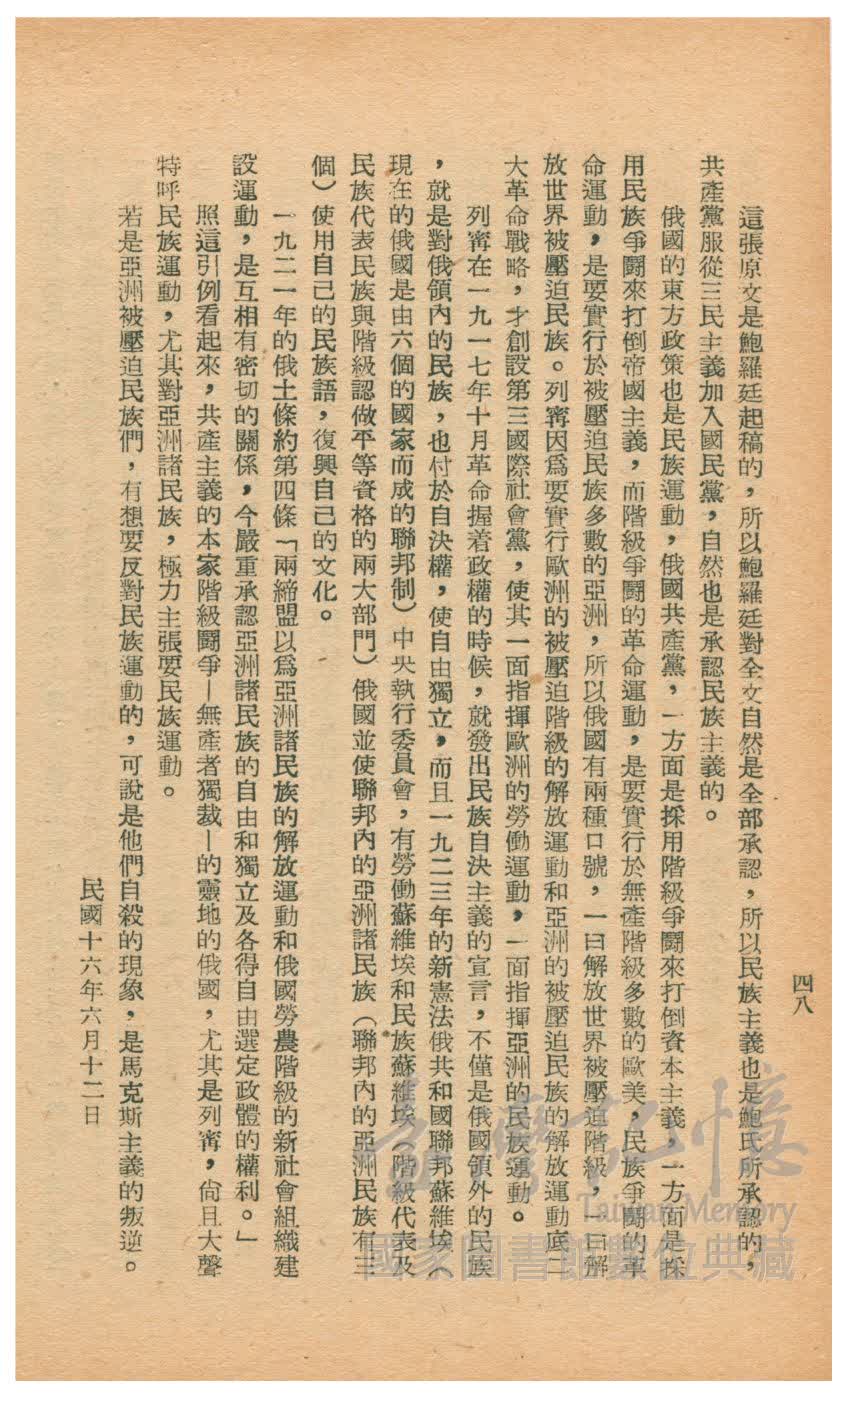 四八
這張原文是鮑羅廷起稿的，所以鮑羅廷對全文自然是全部承認，所以民族主義也是鮑氏所承認的，
共產黨服從三民主義加入國民黨，自然也是承認民族主義的。
俄國的東方政策也是民族運動，俄國共產黨，一方面是採用階級爭鬪來打倒資本主義，一方面是採
用民族爭鬪來打倒帝國主義，而階級爭鬪的革命運動，是要實行於無產階級多數的歐美，民族爭鬪的革
命運動，是要實行於被壓迫民族多數的亞洲，所以俄國有兩種口號，一曰解放世界被壓迫階級，一曰解
放世界被壓迫民族。列寗因爲要實行歐洲的被壓迫階級的解放運動和亞洲的被壓迫民族的解放運動底二
大革命戰略，才創設第三國際社會黨，使其一面指揮歐洲的勞働運動，一面指揮亞洲的民族運動。
列寗在一九一七年十月革命握着政權的時候，就發出民族自決主義的宣言，不僅是俄國領外的民族
，就是對俄領內的民族，也付於自決權，使自由獨立，而且一九二三年的新憲法俄共和國聯邦蘇維埃（
現在的俄國是由六個的國家而成的聯邦制）中央執行委員會，有勞働蘇維埃和民族蘇維埃（階級代表及
民族代表民族與階級認做平等資格的兩大部門）俄國並使聯邦內的亞洲諸民族（聯邦內的亞洲民族有三
個）使用自己的民族語，復興自己的文化。
一九二一年的俄土條約第四條「兩締盟以爲亞洲諸民族的解放運動和俄國勞農階級的新社會組織建
設運動，是互相有密切的關係，今嚴重承認亞洲諸民族的自由和獨立及各得自由選定政體的權利。」
照這引例看起來，共產主義的本家階級鬪爭—無產者獨裁—的靈地的俄國，尤其是列寗，尙且大聲
特呼民族運動，尤其對亞洲諸民族，極力主張要民族運動。
若是亞洲被壓迫民族們，有想要反對民族運動的，可說是他們自殺的現象，是馬克斯主義的叛逆。
民國十六年六月十二日
臺灣記憶
Taiwan Memory
國家圖書館數位典藏